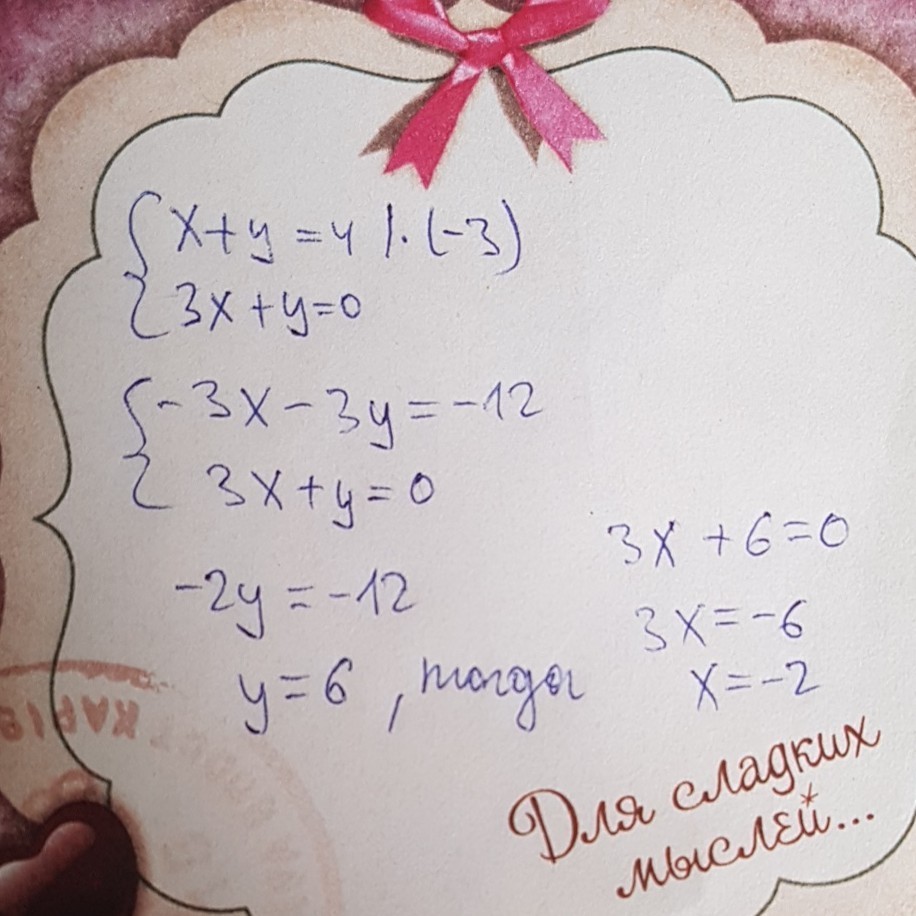 { x+y=4 |·(-3)
{ 3x+y=0
{ -3x-3y=-12
{ 3x+y=0
-2y=-12
y=6, тогда
3x+6=0
3x=-6
x=-2
Для сладких
мыслей...